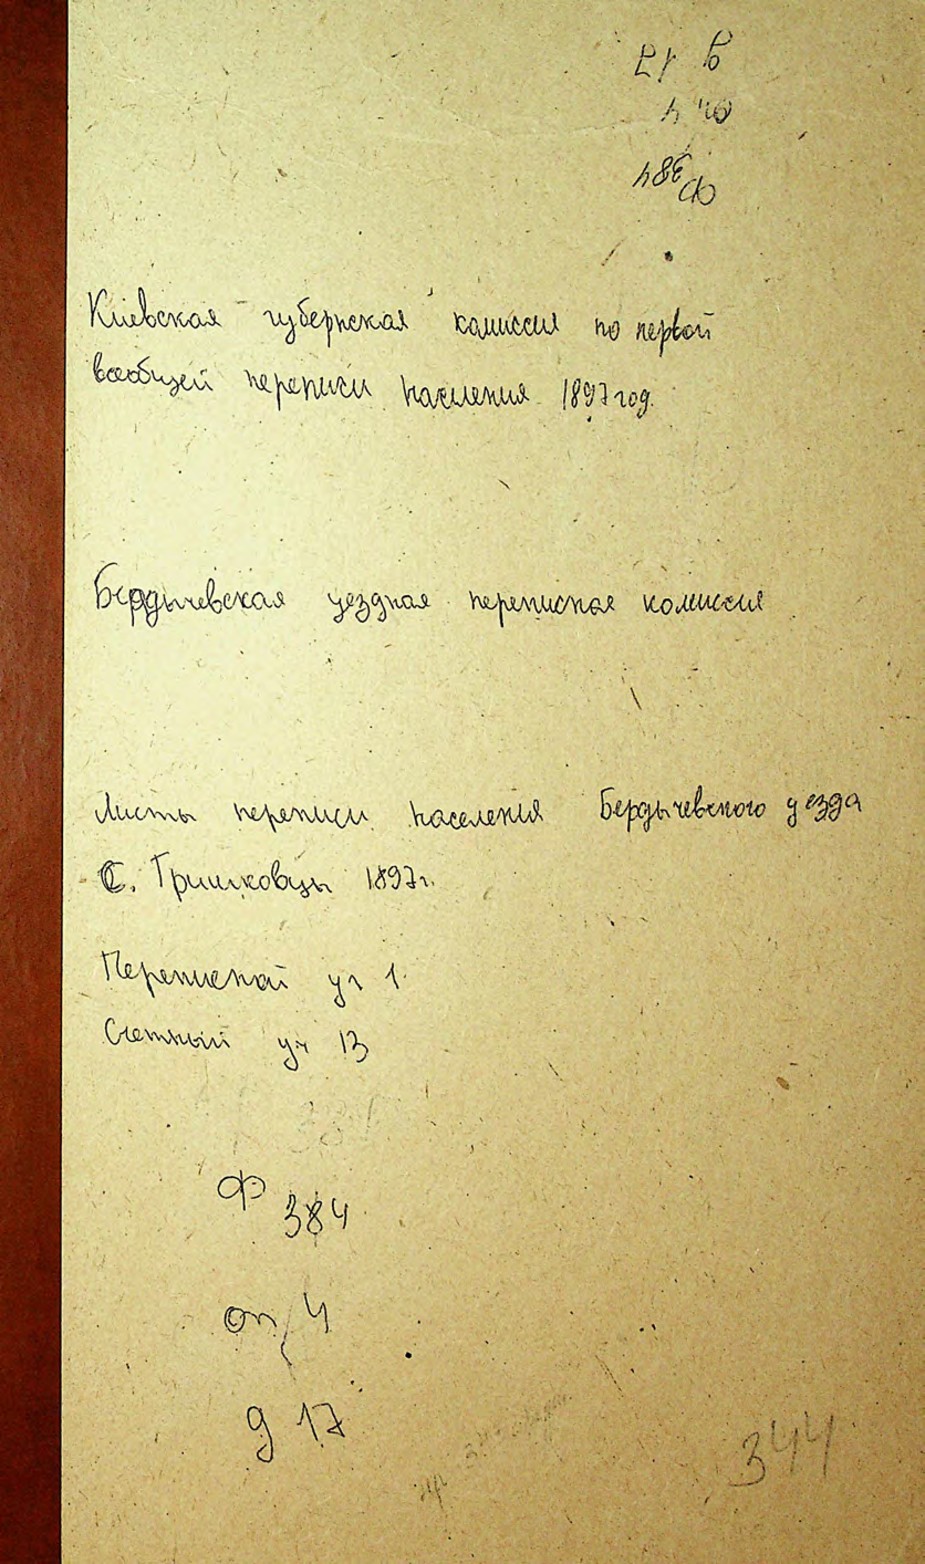 д 17
оп. 4
Ф 384
Киевская губернская комиссия по первой
всеобщей переписи населения 1897 год.
Бердычевская уездная переписная комиссия
Листы переписи населения Бердычевского уезда
С. Гришковцы 1897г.
Переписной уч 1
Счетный уч 13
384
Ф 384
оп 4
д 17
344